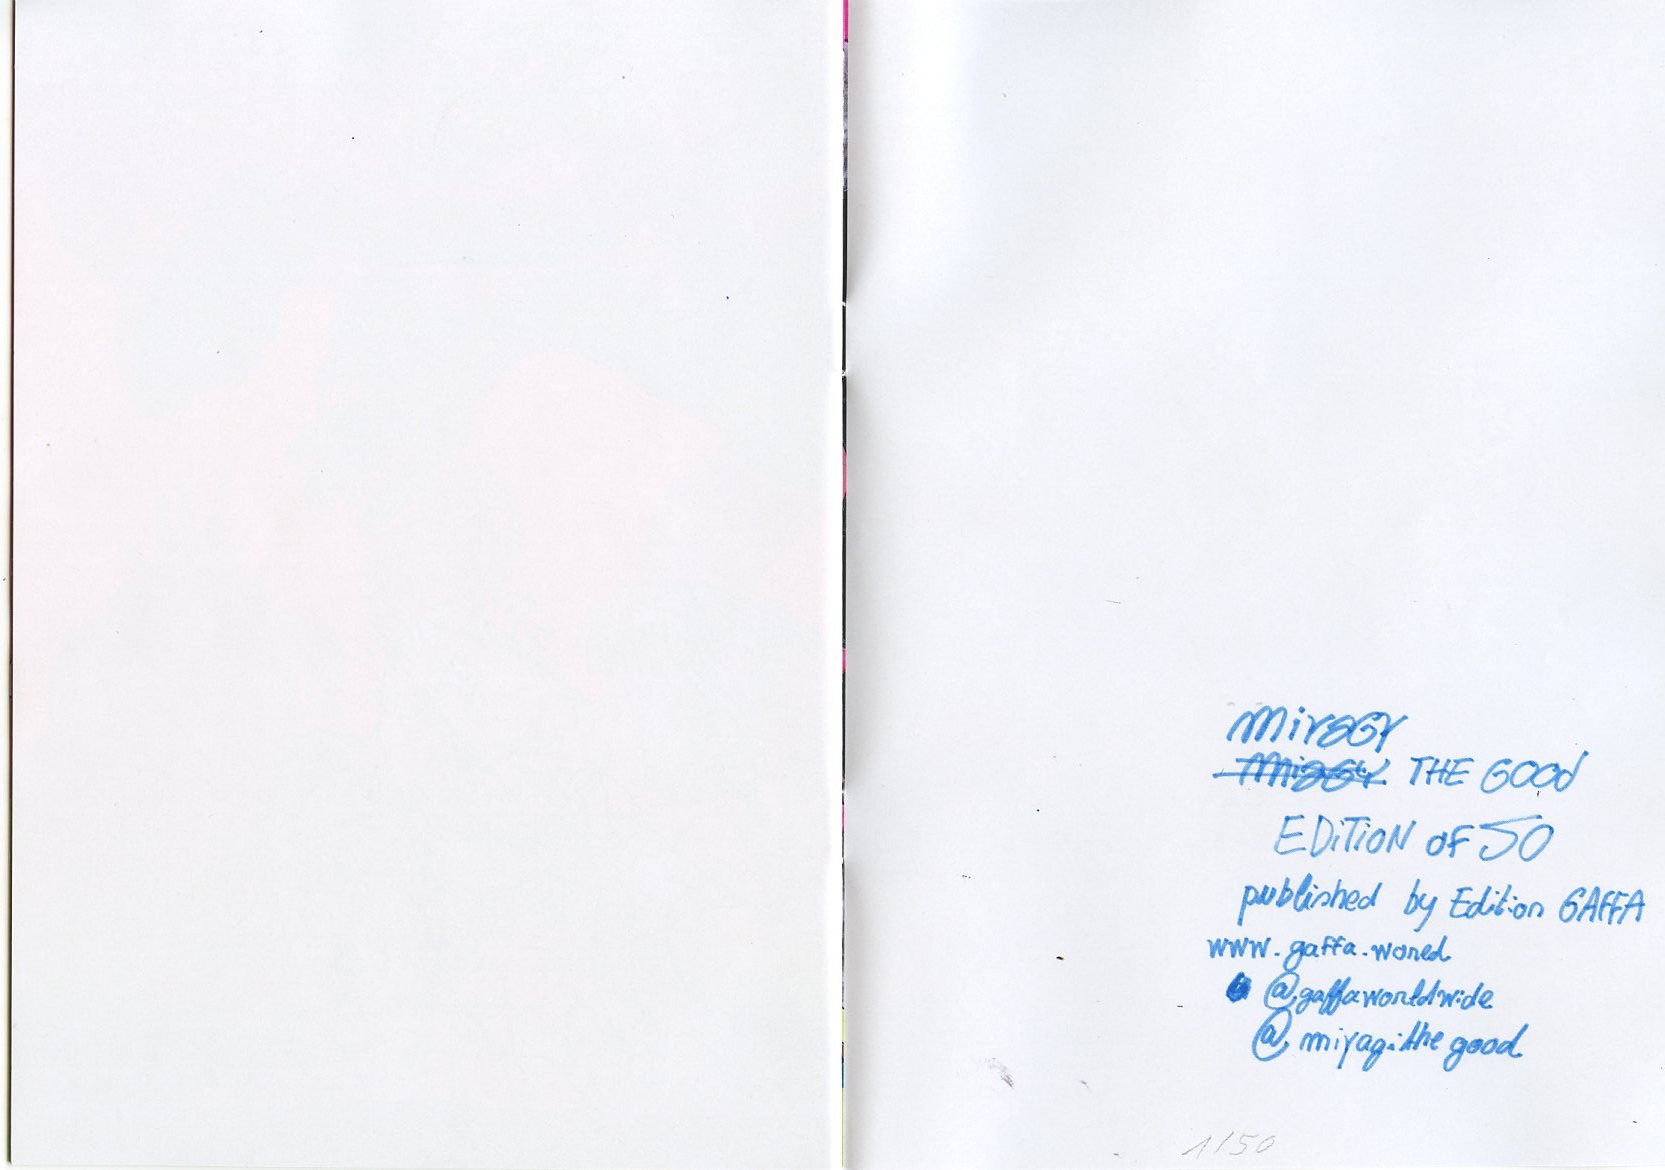 THE GOOD
EDiTiON of 50
published by Edition GAFFA
www.gaffa.world
@gaffaworldwide
@miyagithegood
1/50